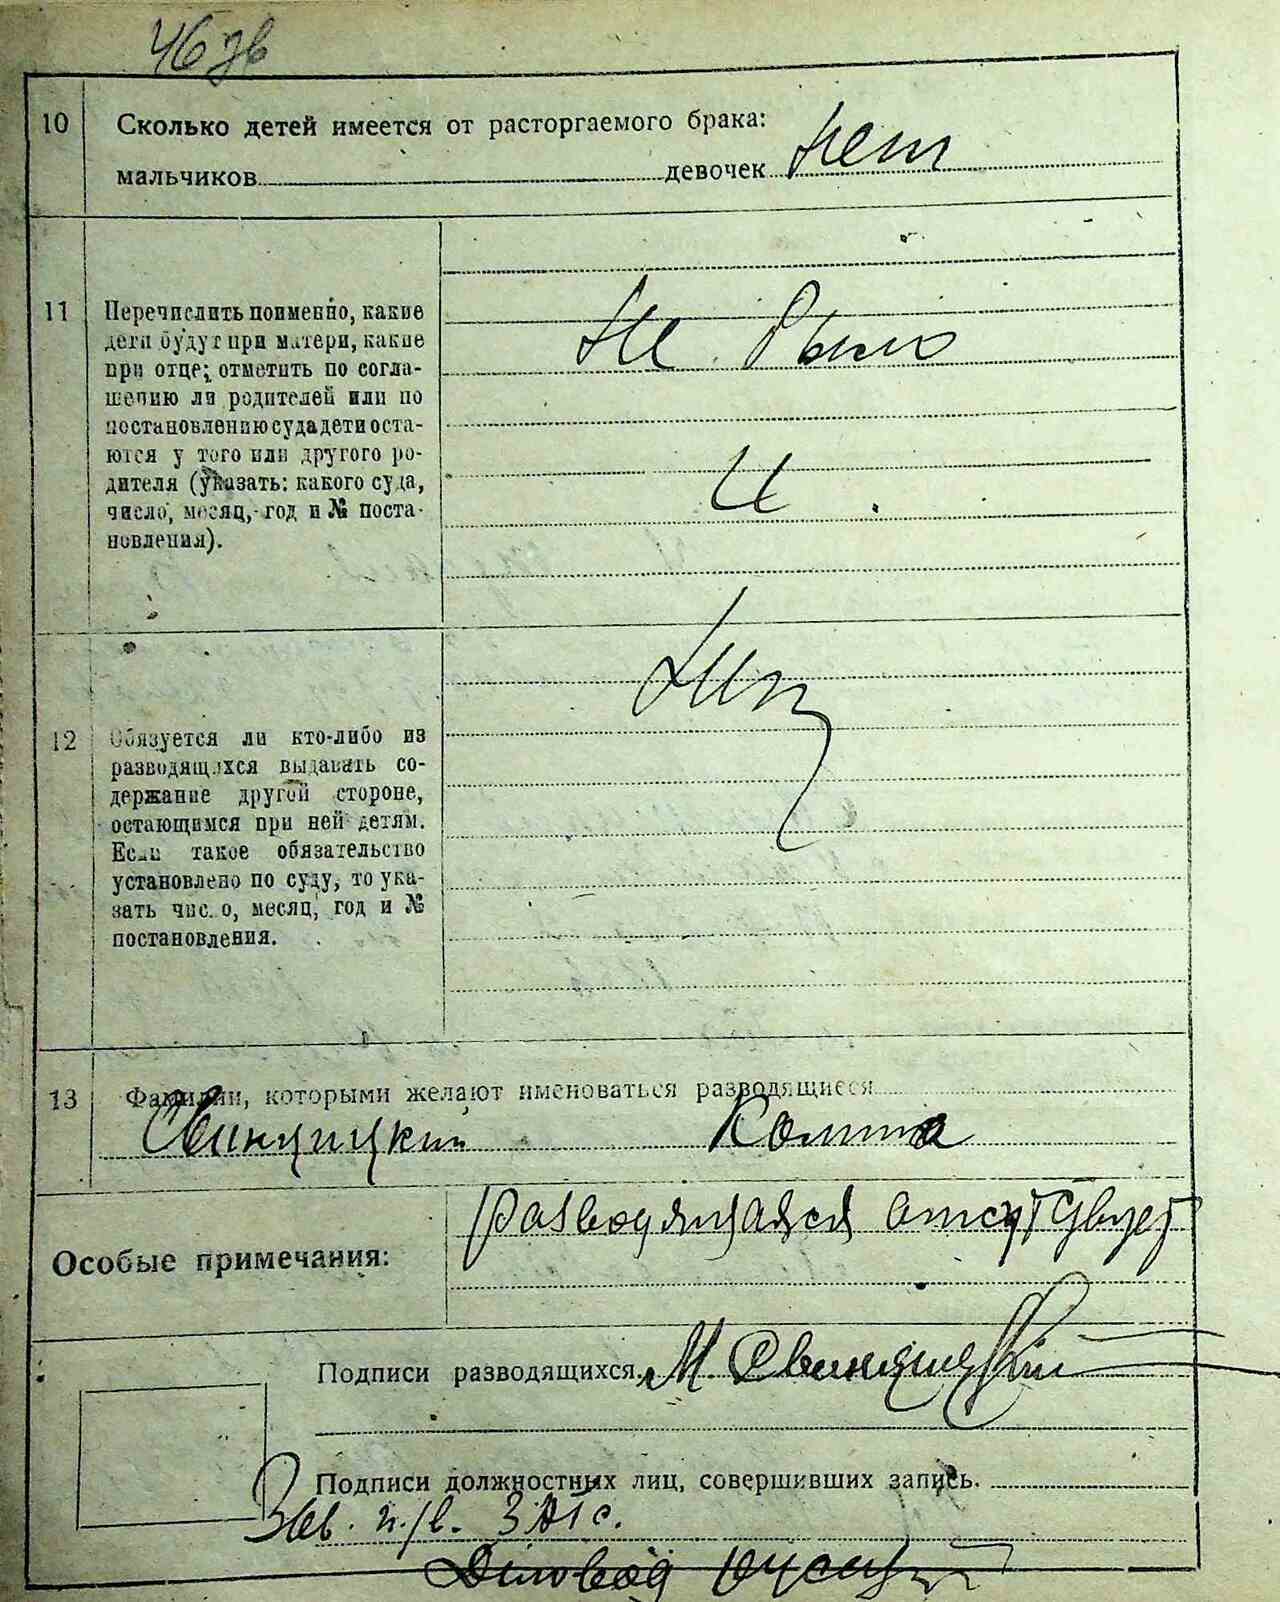 46 зв
10 Сколько детей имеется от расторгаемого брака:
мальчиков девочек нет
11 Перечислить поименно, какие
дети будут при матери, какие
при отце; отметить по согла-
шению ли родителей или по
постановлению суда дети оста-
ются у того или другого ро-
дителя (указать: какого суда,
число, месяц, год и № поста-
новления).
Не было
и
12 Обязуется ли кто-либо из
разводящихся выдавать со-
держание другой стороне,
остающимся при ней детям.
Если такое обязательство
установлено по суду, то ука-
зать число, месяц, год и №
постановления.
Нет
13 Фамилии, которыми желают именоваться разводящиеся
Свинцицкий
Особые примечания:
разводящаяся отсутствует
Подписи разводящихся. М. Свинцицкий
Подписи должностных лиц, совершивших запись.
Зав. п./в. ЗАГС.
Діловод